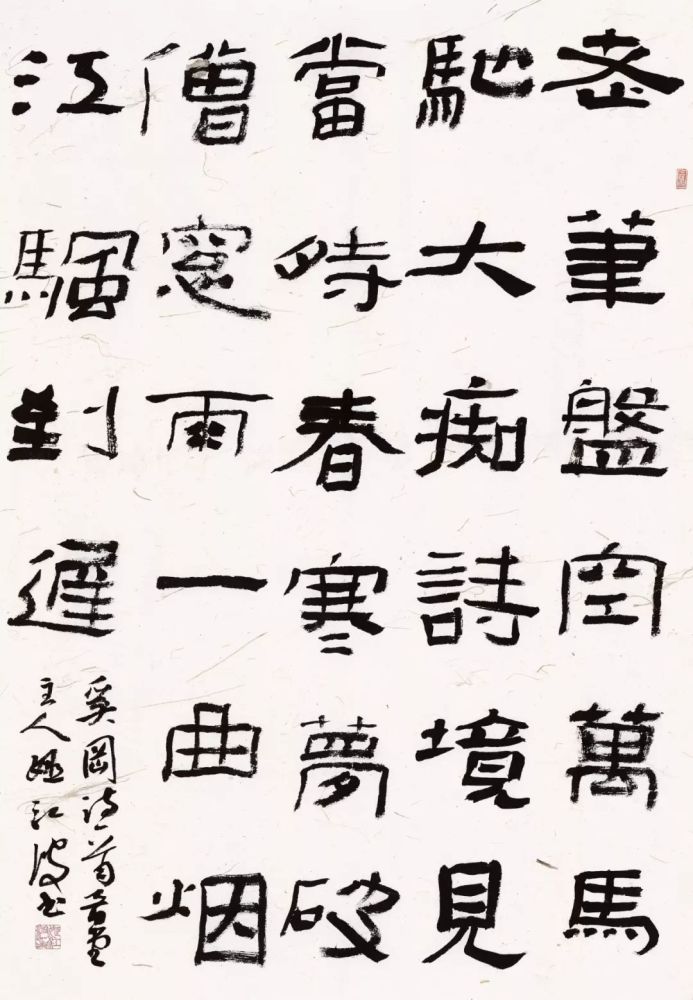 老筆盤空萬馬
馳大痴詩境見
當時春寒夢破
僧窓雨一曲烟
江颿到遲
奚岡詩一首
主人江波书